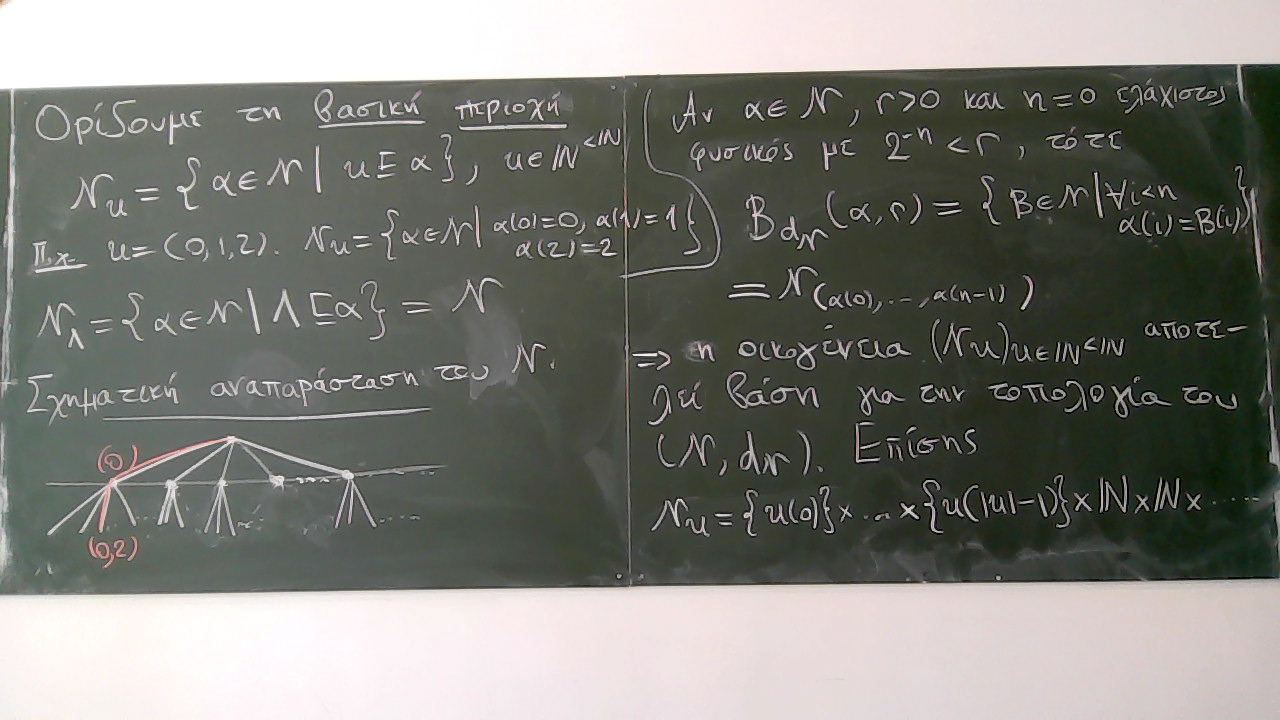 Ορίζουμε τη βασική περιοχή
𝒩_u = {α∈𝒩 | u⊑α}, u∈ℕ^{<ℕ}
Π.χ. u=(0,1,2). 𝒩_u={α∈𝒩 | α(0)=0, α(1)=1
α(2)=2}
𝒩_Λ={α∈𝒩 | Λ⊑α} = 𝒩
Σχηματική αναπαράσταση του 𝒩.
(0)
(0,2)
Αν α∈𝒩, r>0 και n=0 ελάχιστος
φυσικός με 2^{-n}<r, τότε
B_{d_𝒩}(α,r) = {β∈𝒩 | ∀i<n
α(i)=β(i)}
= 𝒩_{(α(0),...,α(n-1))}
⇒ η οικογένεια (𝒩_u)_{u∈ℕ^{<ℕ}} αποτε-
λεί βάση για την τοπολογία του
(𝒩, d_𝒩). Επίσης
𝒩_u={u(0)}×...×{u(|u|-1)}×ℕ×ℕ×......